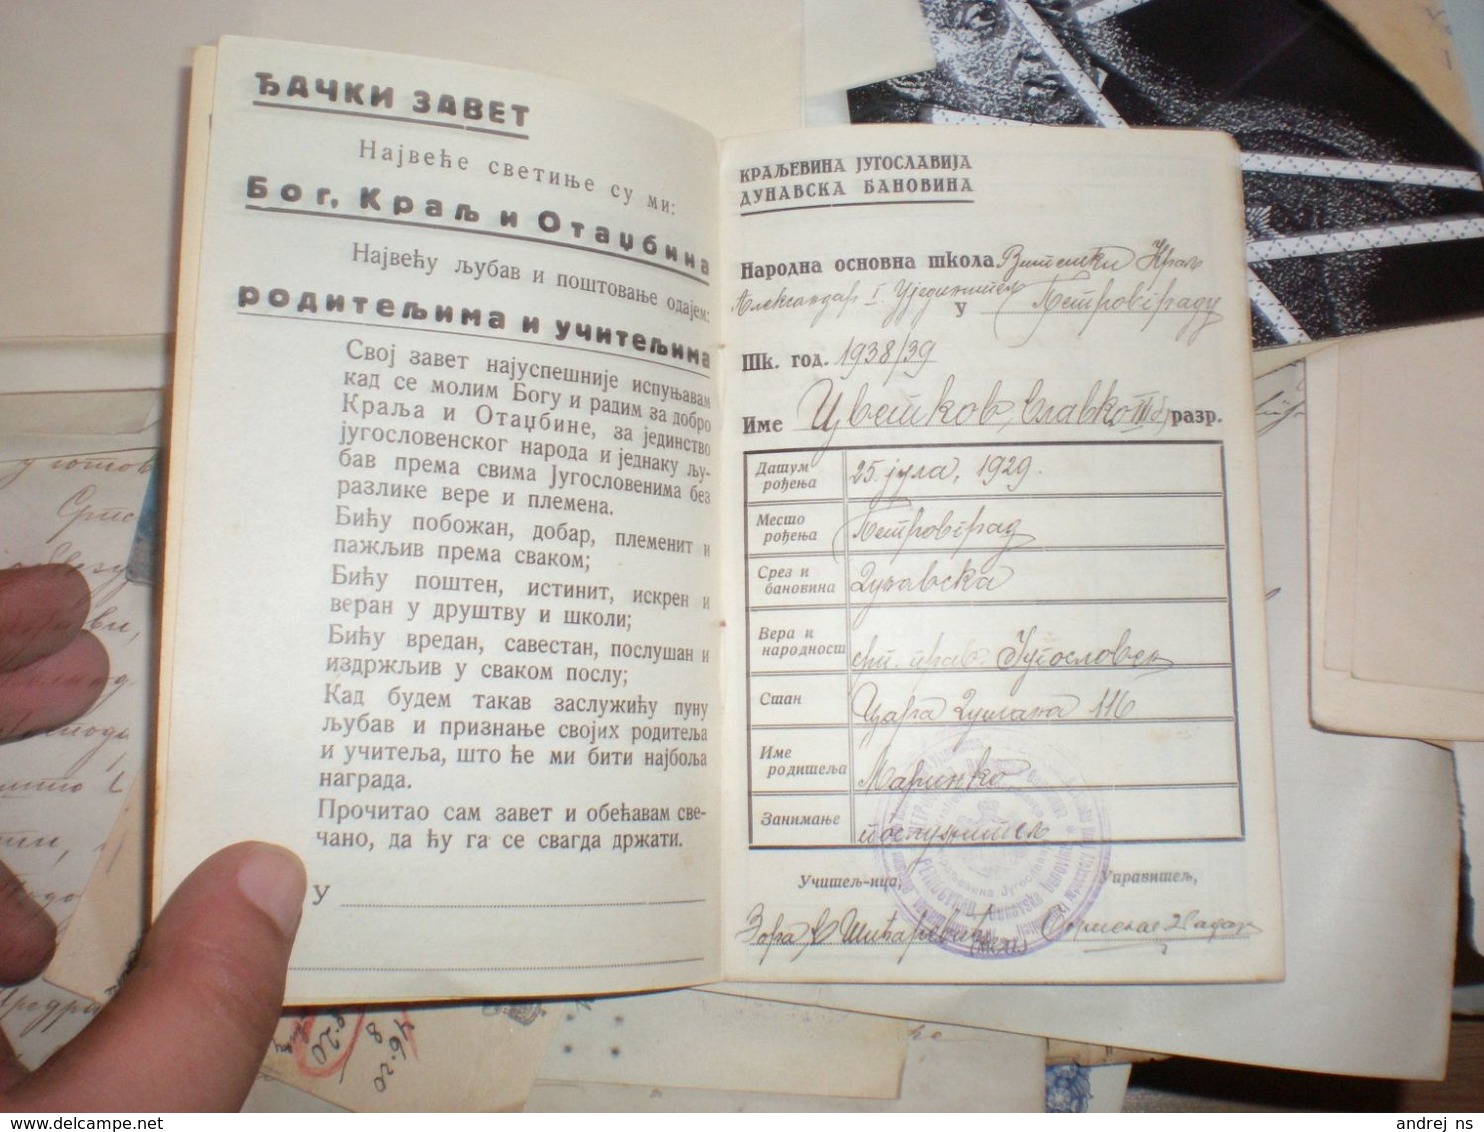 ЂАЧКИ ЗАВЕТ
Највеће светиње су ми:
Бог, Краљ и Отаџбина
Највећу љубав и поштовање одајем:
родитељима и учитељима
Свој завет најуспешније испуњавам
кад се молим Богу и радим за добро
Краља и Отаџбине, за јединство
југословенског народа и једнаку љу-
бав према свима Југословенима без
разлике вере и племена.
Бићу побожан, добар, племенит и
пажљив према сваком;
Бићу поштен, истинит, искрен и
веран у друштву и школи;
Бићу вредан, савестан, послушан и
издржљив у сваком послу;
Кад будем такав заслужићу пуну
љубав и признање својих родитеља
и учитеља, што ће ми бити најбоља
награда.
Прочитао сам завет и обећавам све-
чано, да ћу га се свагда држати.
У
КРАЉЕВИНА ЈУГОСЛАВИЈА
ДУНАВСКА БАНОВИНА
Народна основна школа Витешки Краљ
Александар I. Ујединитељ у Петровграду
Шк. год. 1938/39
Име Цветков, Славко разр.
Датум рођења 25. јула, 1929.
Место рођења Петровград
Срез и бановина Дунавска
Вера и народност срп. прав. Југословен
Стан Цара Душана 116
Име родитеља Маринко
Занимање послужитељ
Учитељ-ица, Управитељ,
Зора
andrej_ns